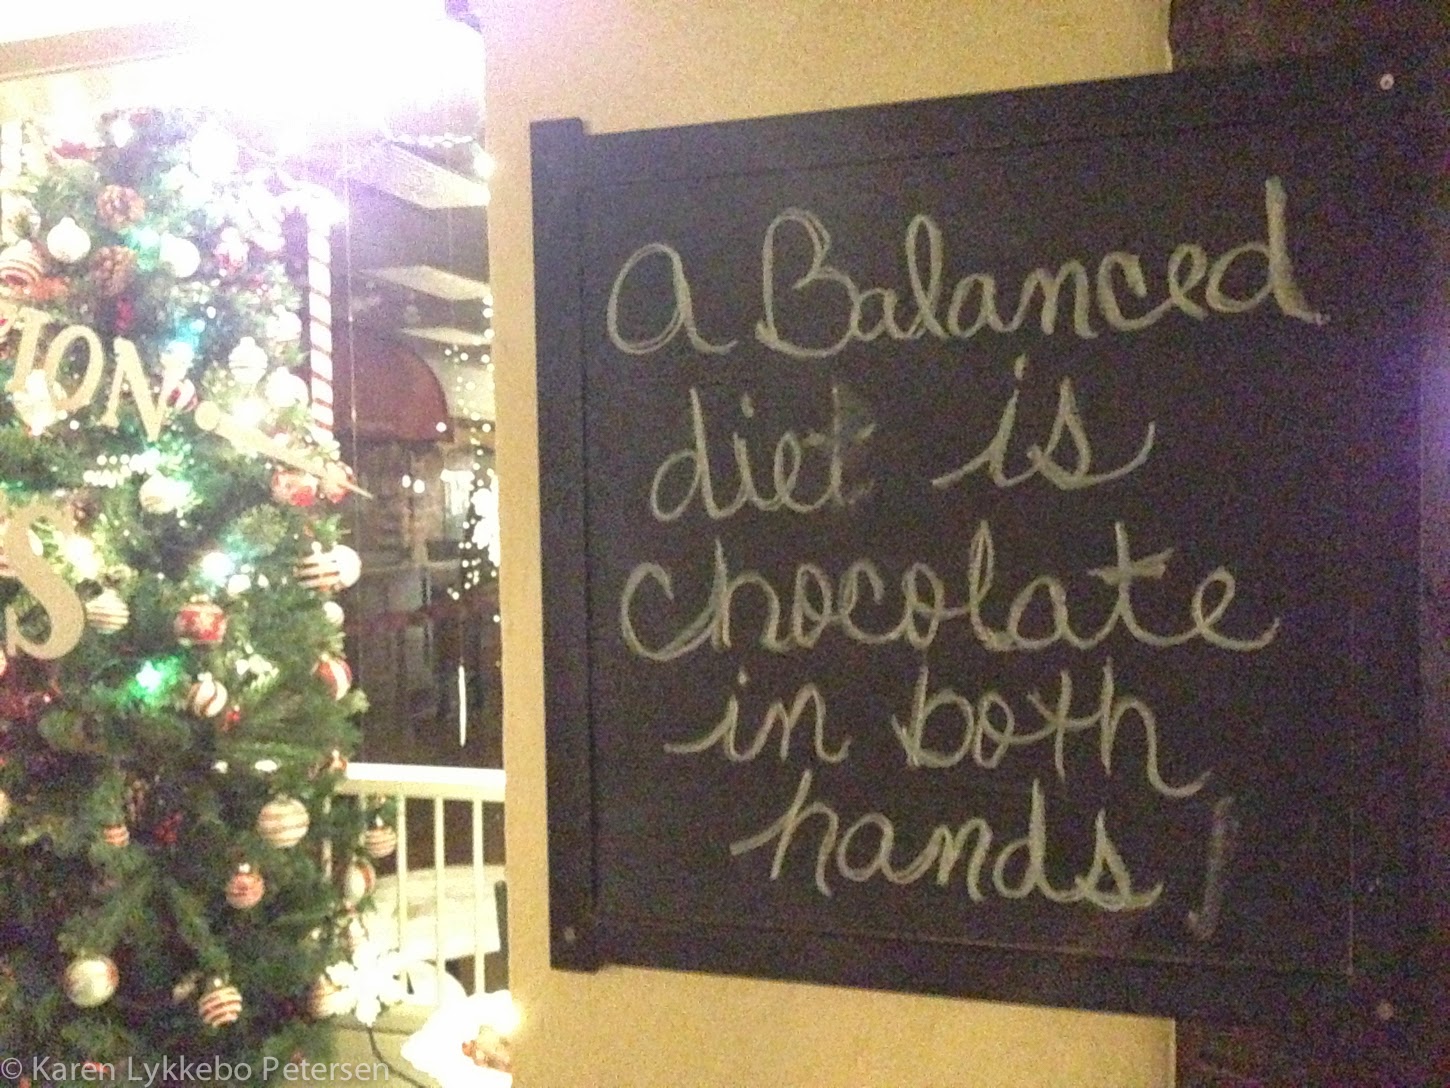 A Balanced
diet is
chocolate
in both
hands
ION
S
© Karen Lykkebo Petersen